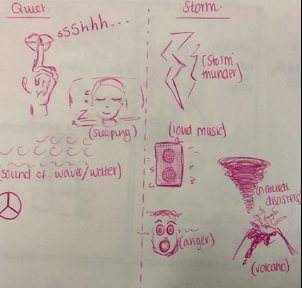 Quiet
Storm
sssshhh...
(storm
thunder)
(sleeping)
(loud music)
sound of waves/water)
(natural
disasters)
(anger)
(volcano)